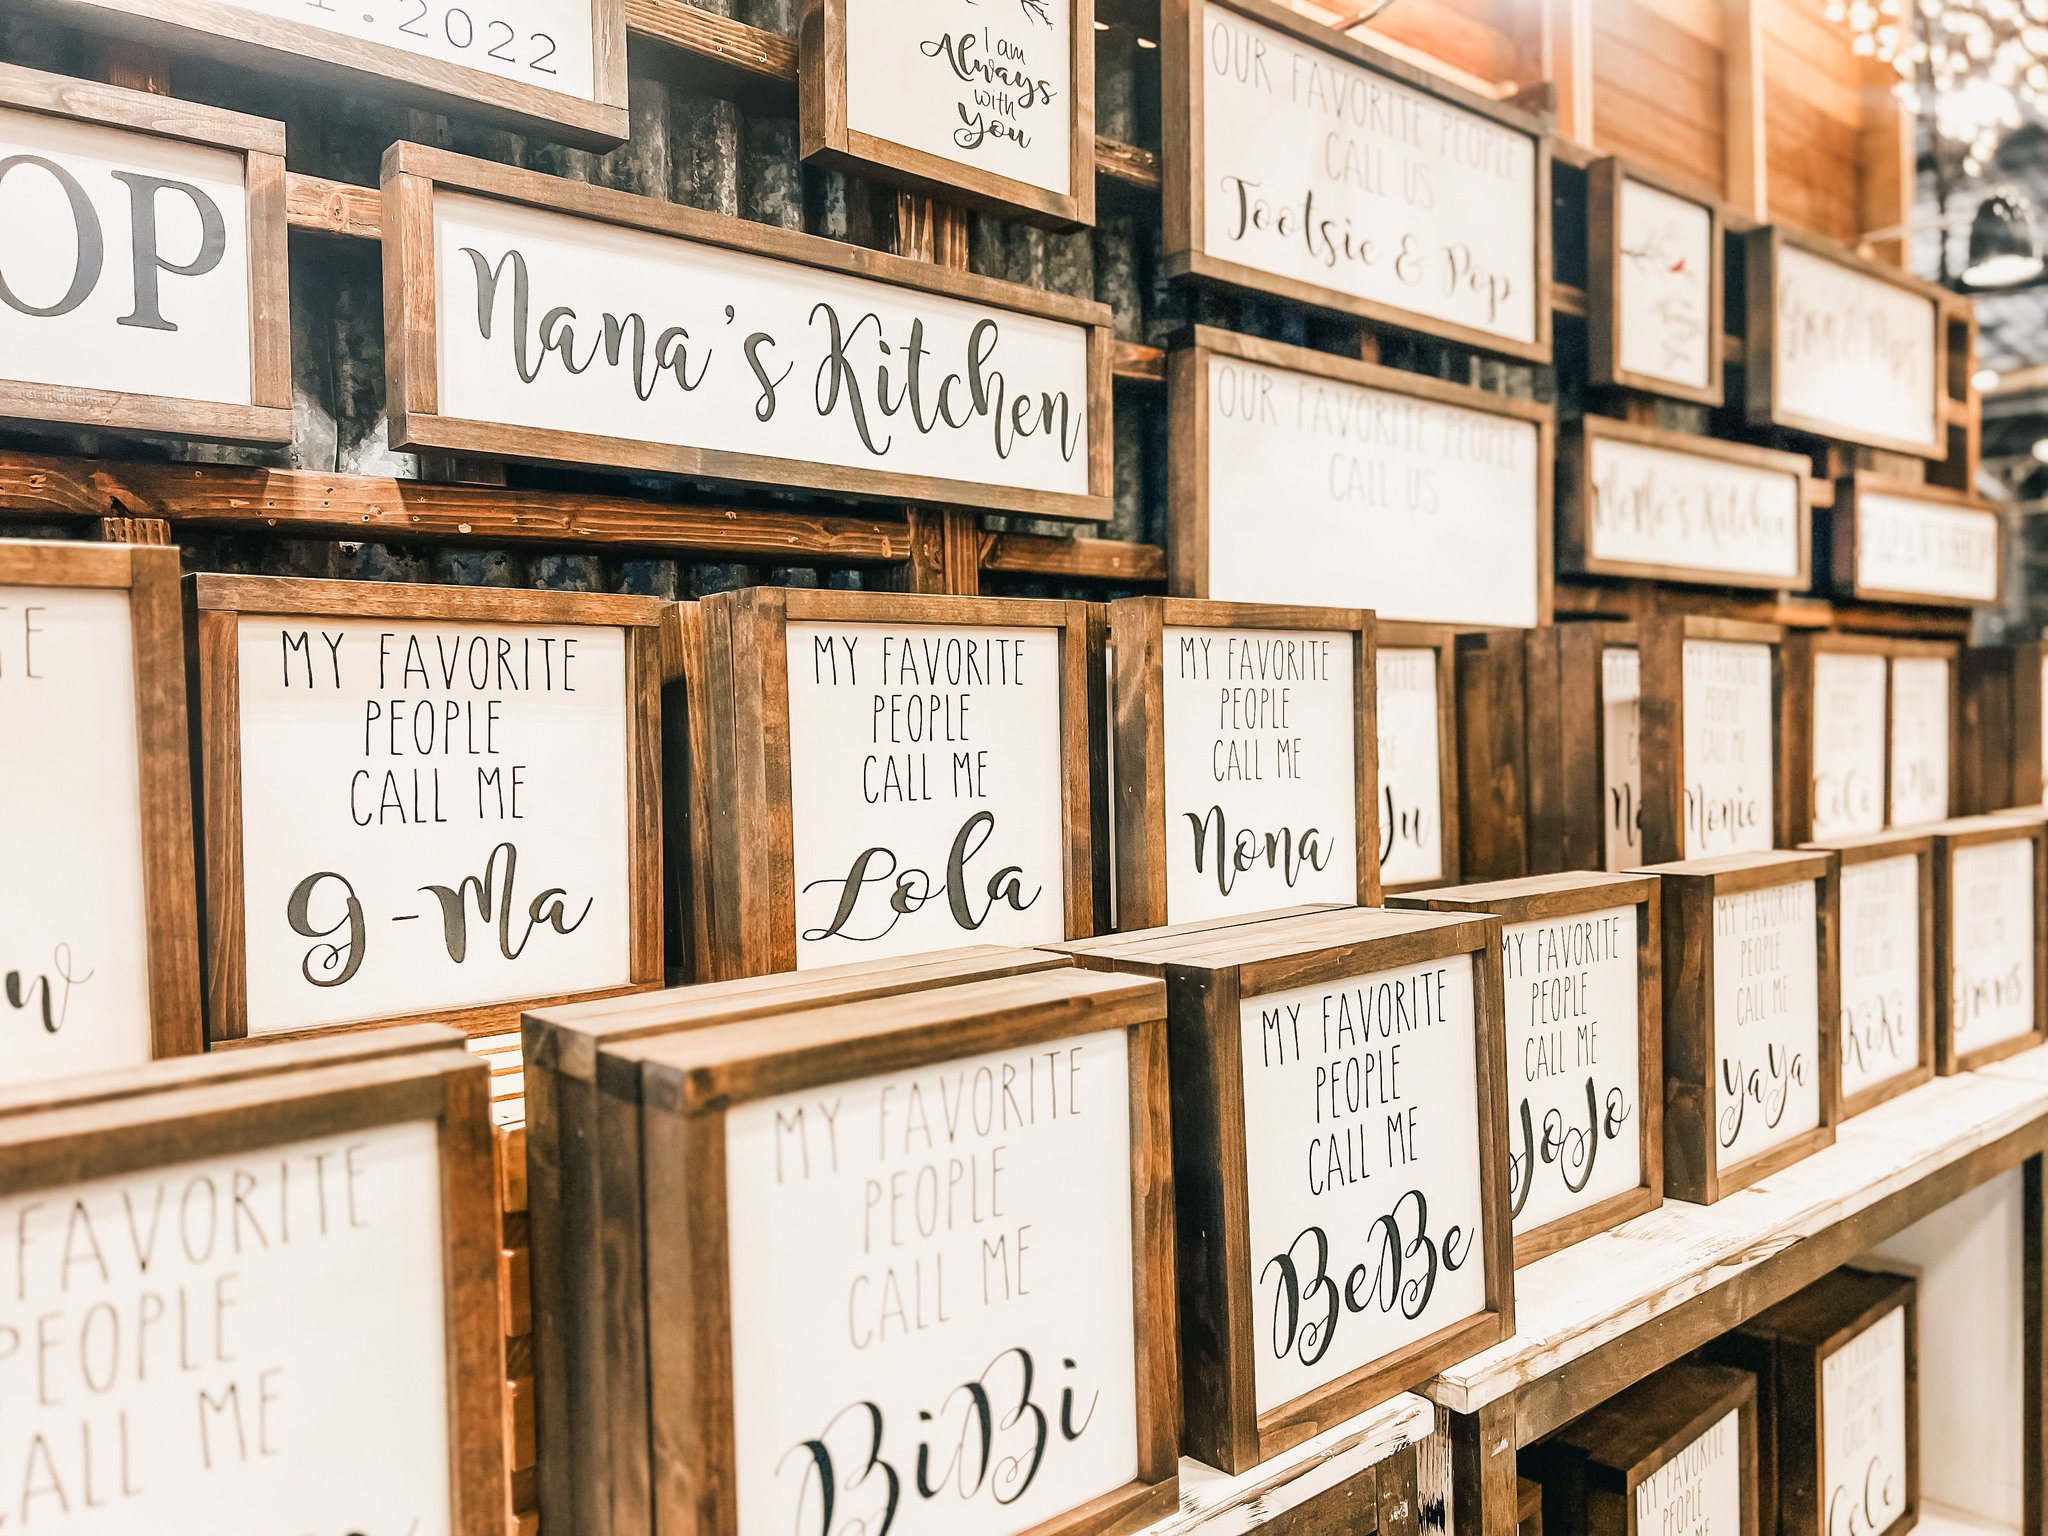 .2022
I am
Always
with
You
OUR FAVORITE PEOPLE
CALL US
Tootsie & Pop
OP
Nana's Kitchen
OUR FAVORITE PEOPLE
CALL US
Kitchen
MY FAVORITE
PEOPLE
CALL ME
G-Ma
MY FAVORITE
PEOPLE
CALL ME
Lola
MY FAVORITE
PEOPLE
CALL ME
Nona
Ju
MY FAVORITE
PEOPLE
CALL ME
Nonie
CiCi
FAVORITE
PEOPLE
CALL ME
MY FAVORITE
PEOPLE
CALL ME
BiBi
MY FAVORITE
PEOPLE
CALL ME
BeBe
MY FAVORITE
PEOPLE
CALL ME
JoJo
MY FAVORITE
PEOPLE
CALL ME
YaYa
KiKi
MY FAVORITE
PEOPLE
CALL ME
CeCe